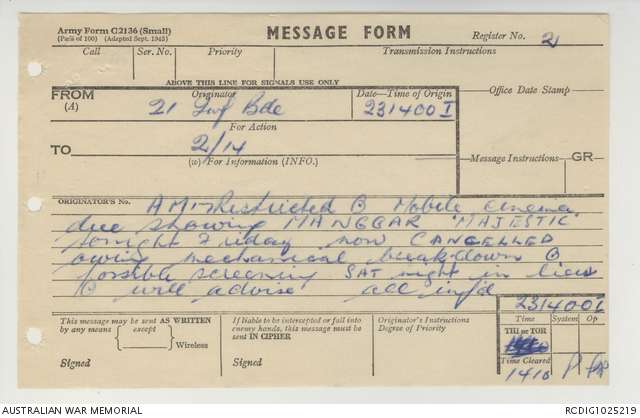 Army Form C2136 (Small)
(Pads of 100) (Adapted Sept. 1943)
MESSAGE FORM
Register No. 2
Call Ser. No. Priority Transmission Instructions
ABOVE THIS LINE FOR SIGNALS USE ONLY
FROM
(A)
Originator
21 Inf Bde
Date—Time of Origin
231400 I
Office Date Stamp
For Action
TO
2/14
(w) For Information (INFO.)
Message Instructions GR
ORIGINATOR'S No.
Restricted (.) Mobile Cinema
due showing MANGGAR 'MAJESTIC'
tonight Friday now CANCELLED
owing mechanical breakdown (.)
possible screening SAT night in lieu
(.) will advise all inf'd
This message may be sent AS WRITTEN
by any means except Wireless
Signed
If liable to be intercepted or fall into
enemy hands, this message must be
sent IN CIPHER
Signed
Originator's Instructions
Degree of Priority
231400 I
Time System Op
THI or TOR
Time
Cleared
1410
AUSTRALIAN WAR MEMORIAL
RCDIG1025219